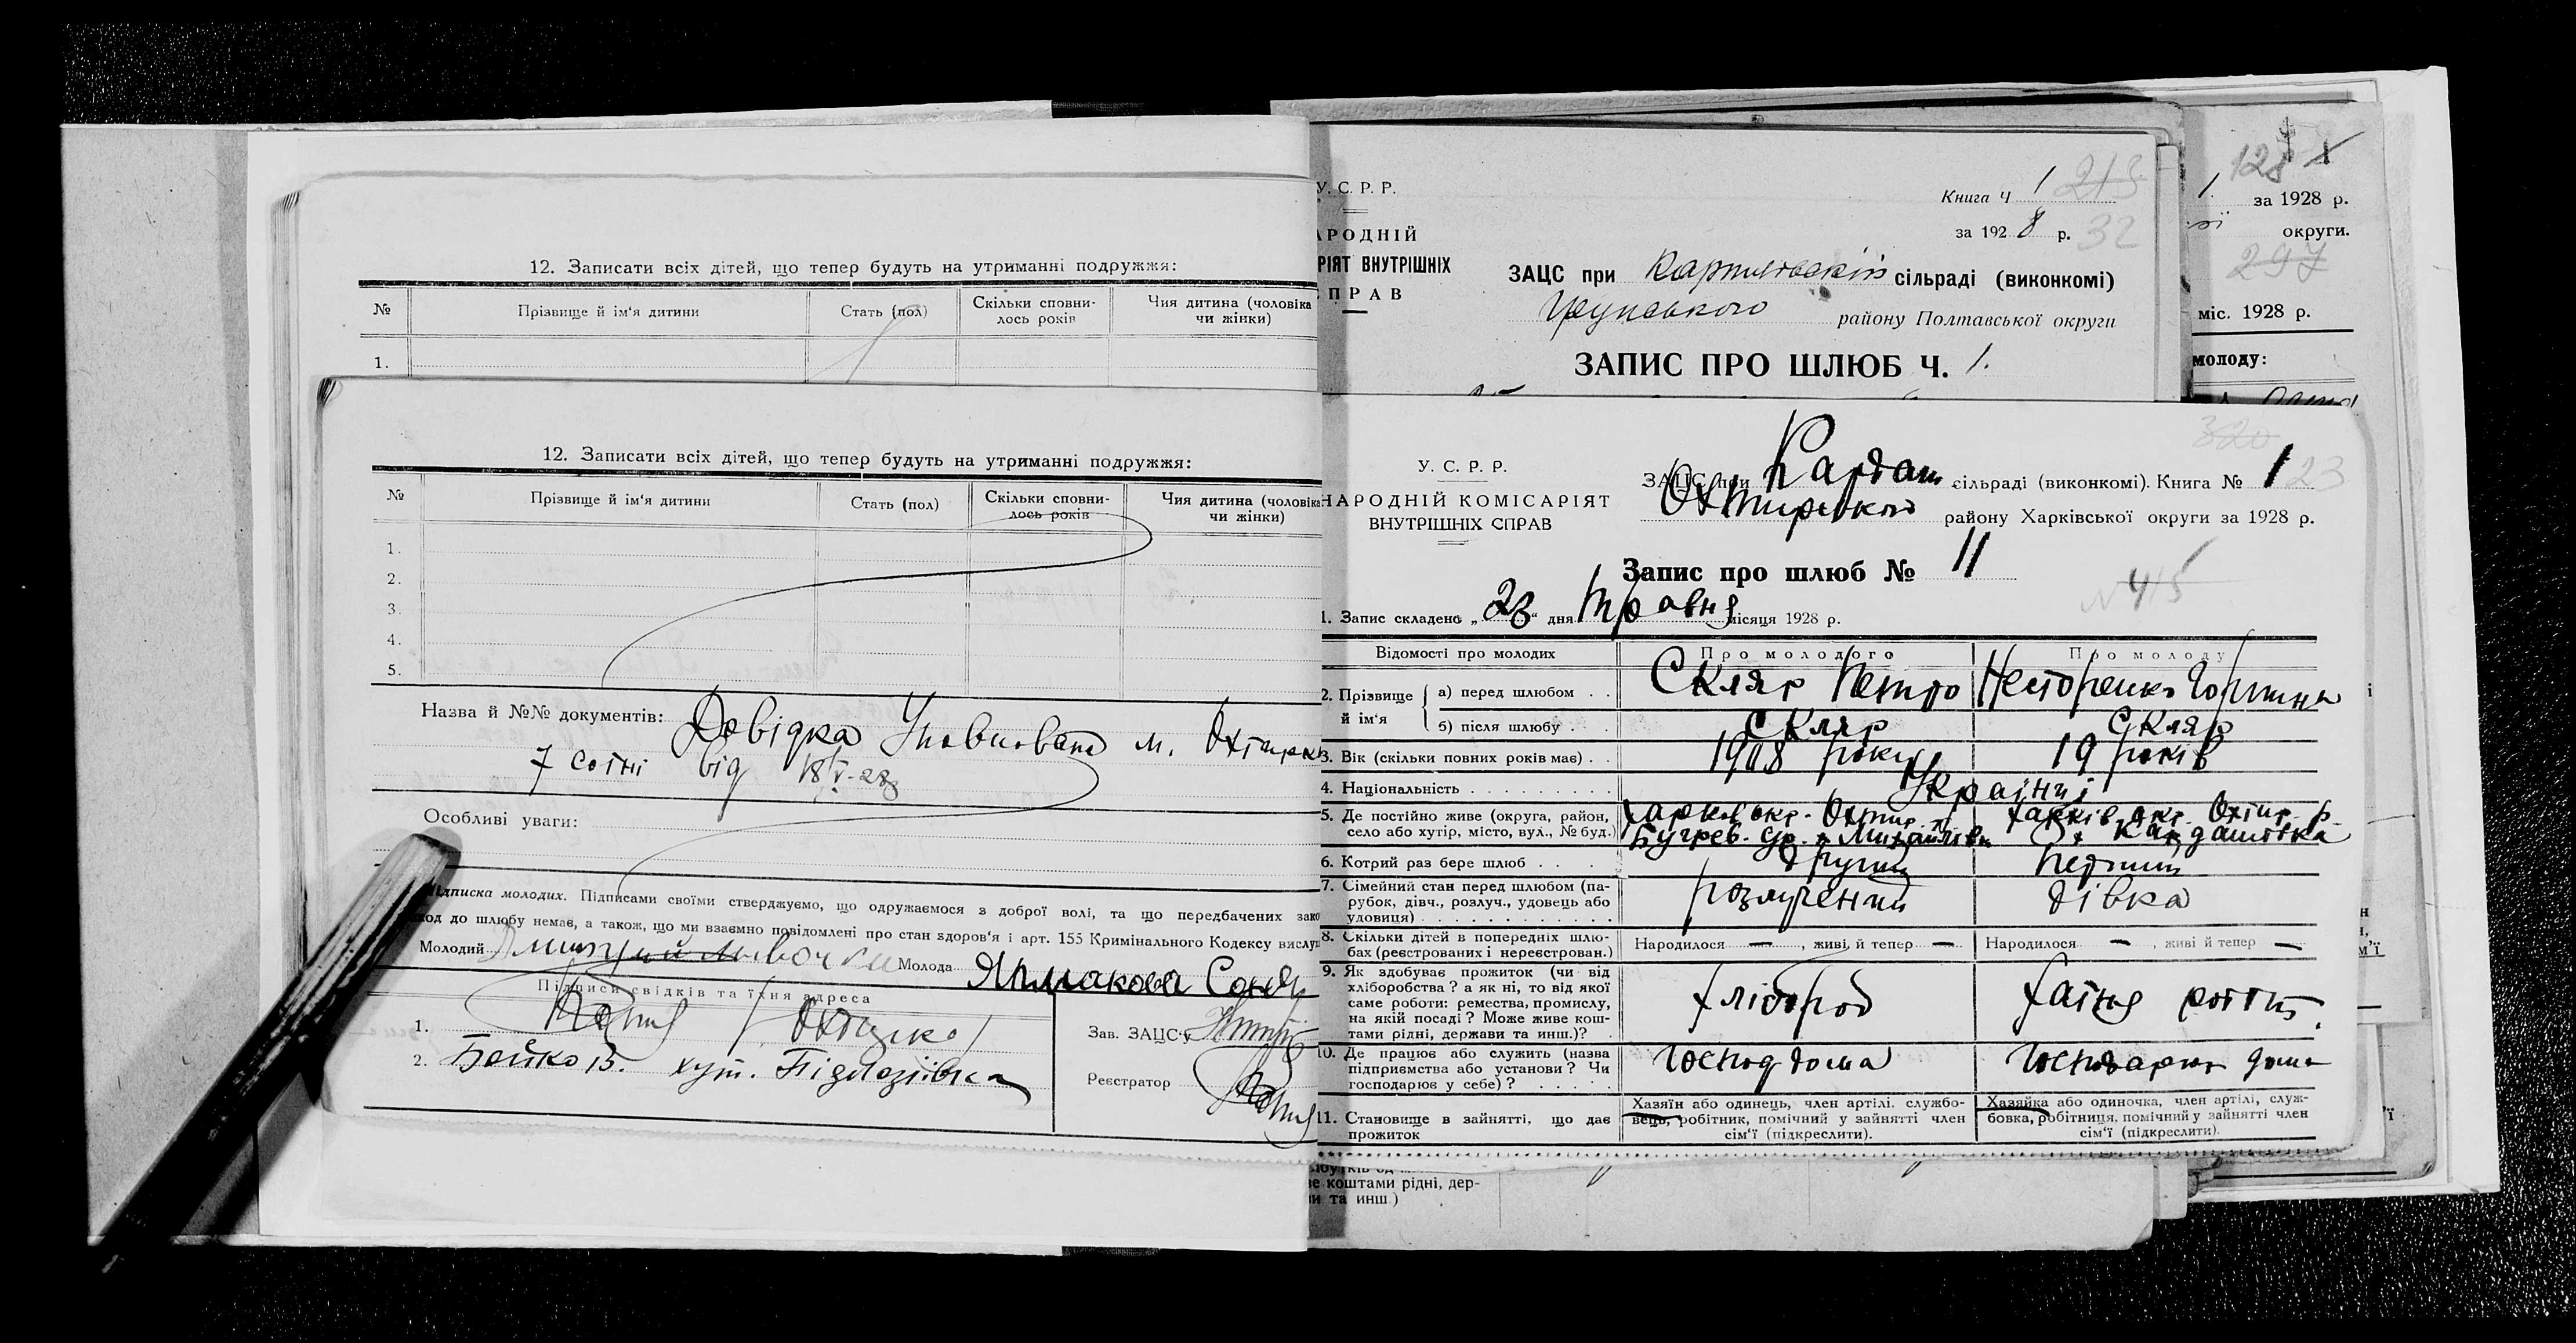 12. Записати всіх дітей, що тепер будуть на утриманні подружжя:
№ Прізвище й ім'я дитини Стать (пол) Скільки сповни-лось років Чия дитина (чоловіка чи жінки)
1.
12. Записати всіх дітей, що тепер будуть на утриманні подружжя:
№ Прізвище й ім'я дитини Стать (пол) Скільки сповни-лось років Чия дитина (чоловіка чи жінки)
1.
2.
3.
4.
5.
Назва й №№ документів: Довідка м. Охтирк
7 сотні від 18/V-28р
Особливі уваги:
Підписка молодих. Підписами своїми стверджуємо, що одружаємося з доброї волі, та що передбачених зако
код до шлюбу немає, а також, що ми взаємно повідомлені про стан здоров'я і арт. 155 Кримінального Кодексу вислу
Молодий Молода Соня
Підписи свідків та їхня адреса
1.
2. Бойко В. хут.
Зав. ЗАЦС'у
Реєстратор
У. С. Р. Р.
АРОДНІЙ
РІЯТ ВНУТРІШНІХ
ПРАВ
Книга Ч 1 215
за 1928 р. 32
ЗАЦС при сільраді (виконкомі)
Грунського району Полтавської округи
ЗАПИС ПРО ШЛЮБ Ч. 1.
128
1. за 1928 р.
округи.
297
міс. 1928 р.
молоду:
320
У. С. Р. Р.
НАРОДНІЙ КОМІСАРІЯТ
ВНУТРІШНІХ СПРАВ
ЗАЦС при Кардаш сільраді (виконкомі). Книга № 1 23
Охтирського району Харківської округи за 1928 р.
Запис про шлюб № 11
N 415
1. Запис складено „23“ дня Травня місяця 1928 р.
Відомості про молодих Про молодого Про молоду
2. Прізвище й ім'я а) перед шлюбом . . Скляр Петро Несторенко
б) після шлюбу . . Скляр Скляр
3. Вік (скільки повних років має) . . 1908 року 19 років
4. Національність . . . . . . . . . Українці
5. Де постійно живе (округа, район, село або хутір, місто, вул., № буд.) Харків. окр. Охтир. р. Бугрев. с/р. х Михайлівк Харків. окр. Охтир. р. х Кардашівка
6. Котрий раз бере шлюб . . . . Другий Перший
7. Сімейний стан перед шлюбом (парубок, дівч., розлуч., удовець або удовиця) . . . . . . . . . . . розлучений дівка
8. Скільки дітей в попередніх шлюбах (реєстрованих і нереєстрован.) Народилося — , живі й тепер — Народилося — , живі й тепер —
9. Як здобуває прожиток (чи від хліборобства? а як ні, то від якої саме роботи: ремества, промислу, на якій посаді? Може живе коштами рідні, держави та инш.)? хлібороб
10. Де працює або служить (назва підприємства або установи? Чи господарює у себе)? . . . . . Господ дома Господарює дома
11. Становище в зайнятті, що дає прожиток Хазяїн або одинець, член артілі. службовець, робітник, помічний у зайнятті член сім'ї (підкреслити). Хазяйка або одиночка, член артілі, службовка, робітниця, помічний у зайнятті член сім'ї (підкреслити).
е коштами рідні, дер-
и та инш.)